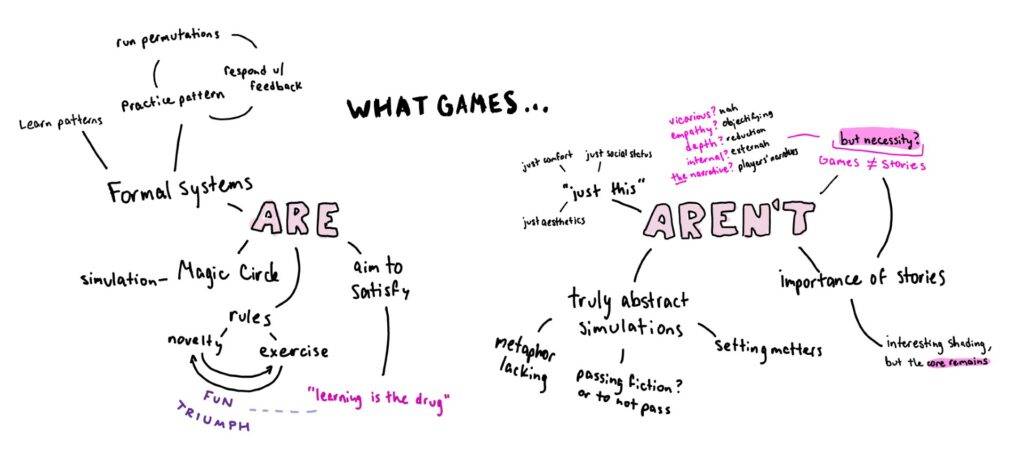 WHAT GAMES...
run permutations
respond w/
feedback
Practice pattern
Learn patterns
Formal Systems
ARE
simulation - Magic Circle
aim to
satisfy
rules
novelty
exercise
FUN
TRIUMPH
"learning is the drug"
vicarious? nah
empathy? objectifying
depth? reduction
internal? external
the narrative? players' narratives
but necessity?
Games ≠ Stories
just comfort
just social status
"just this"
just aesthetics
AREN'T
importance of stories
truly abstract
simulations
metaphor
lacking
passing fiction?
or to not pass
setting matters
interesting shading,
but the core remains